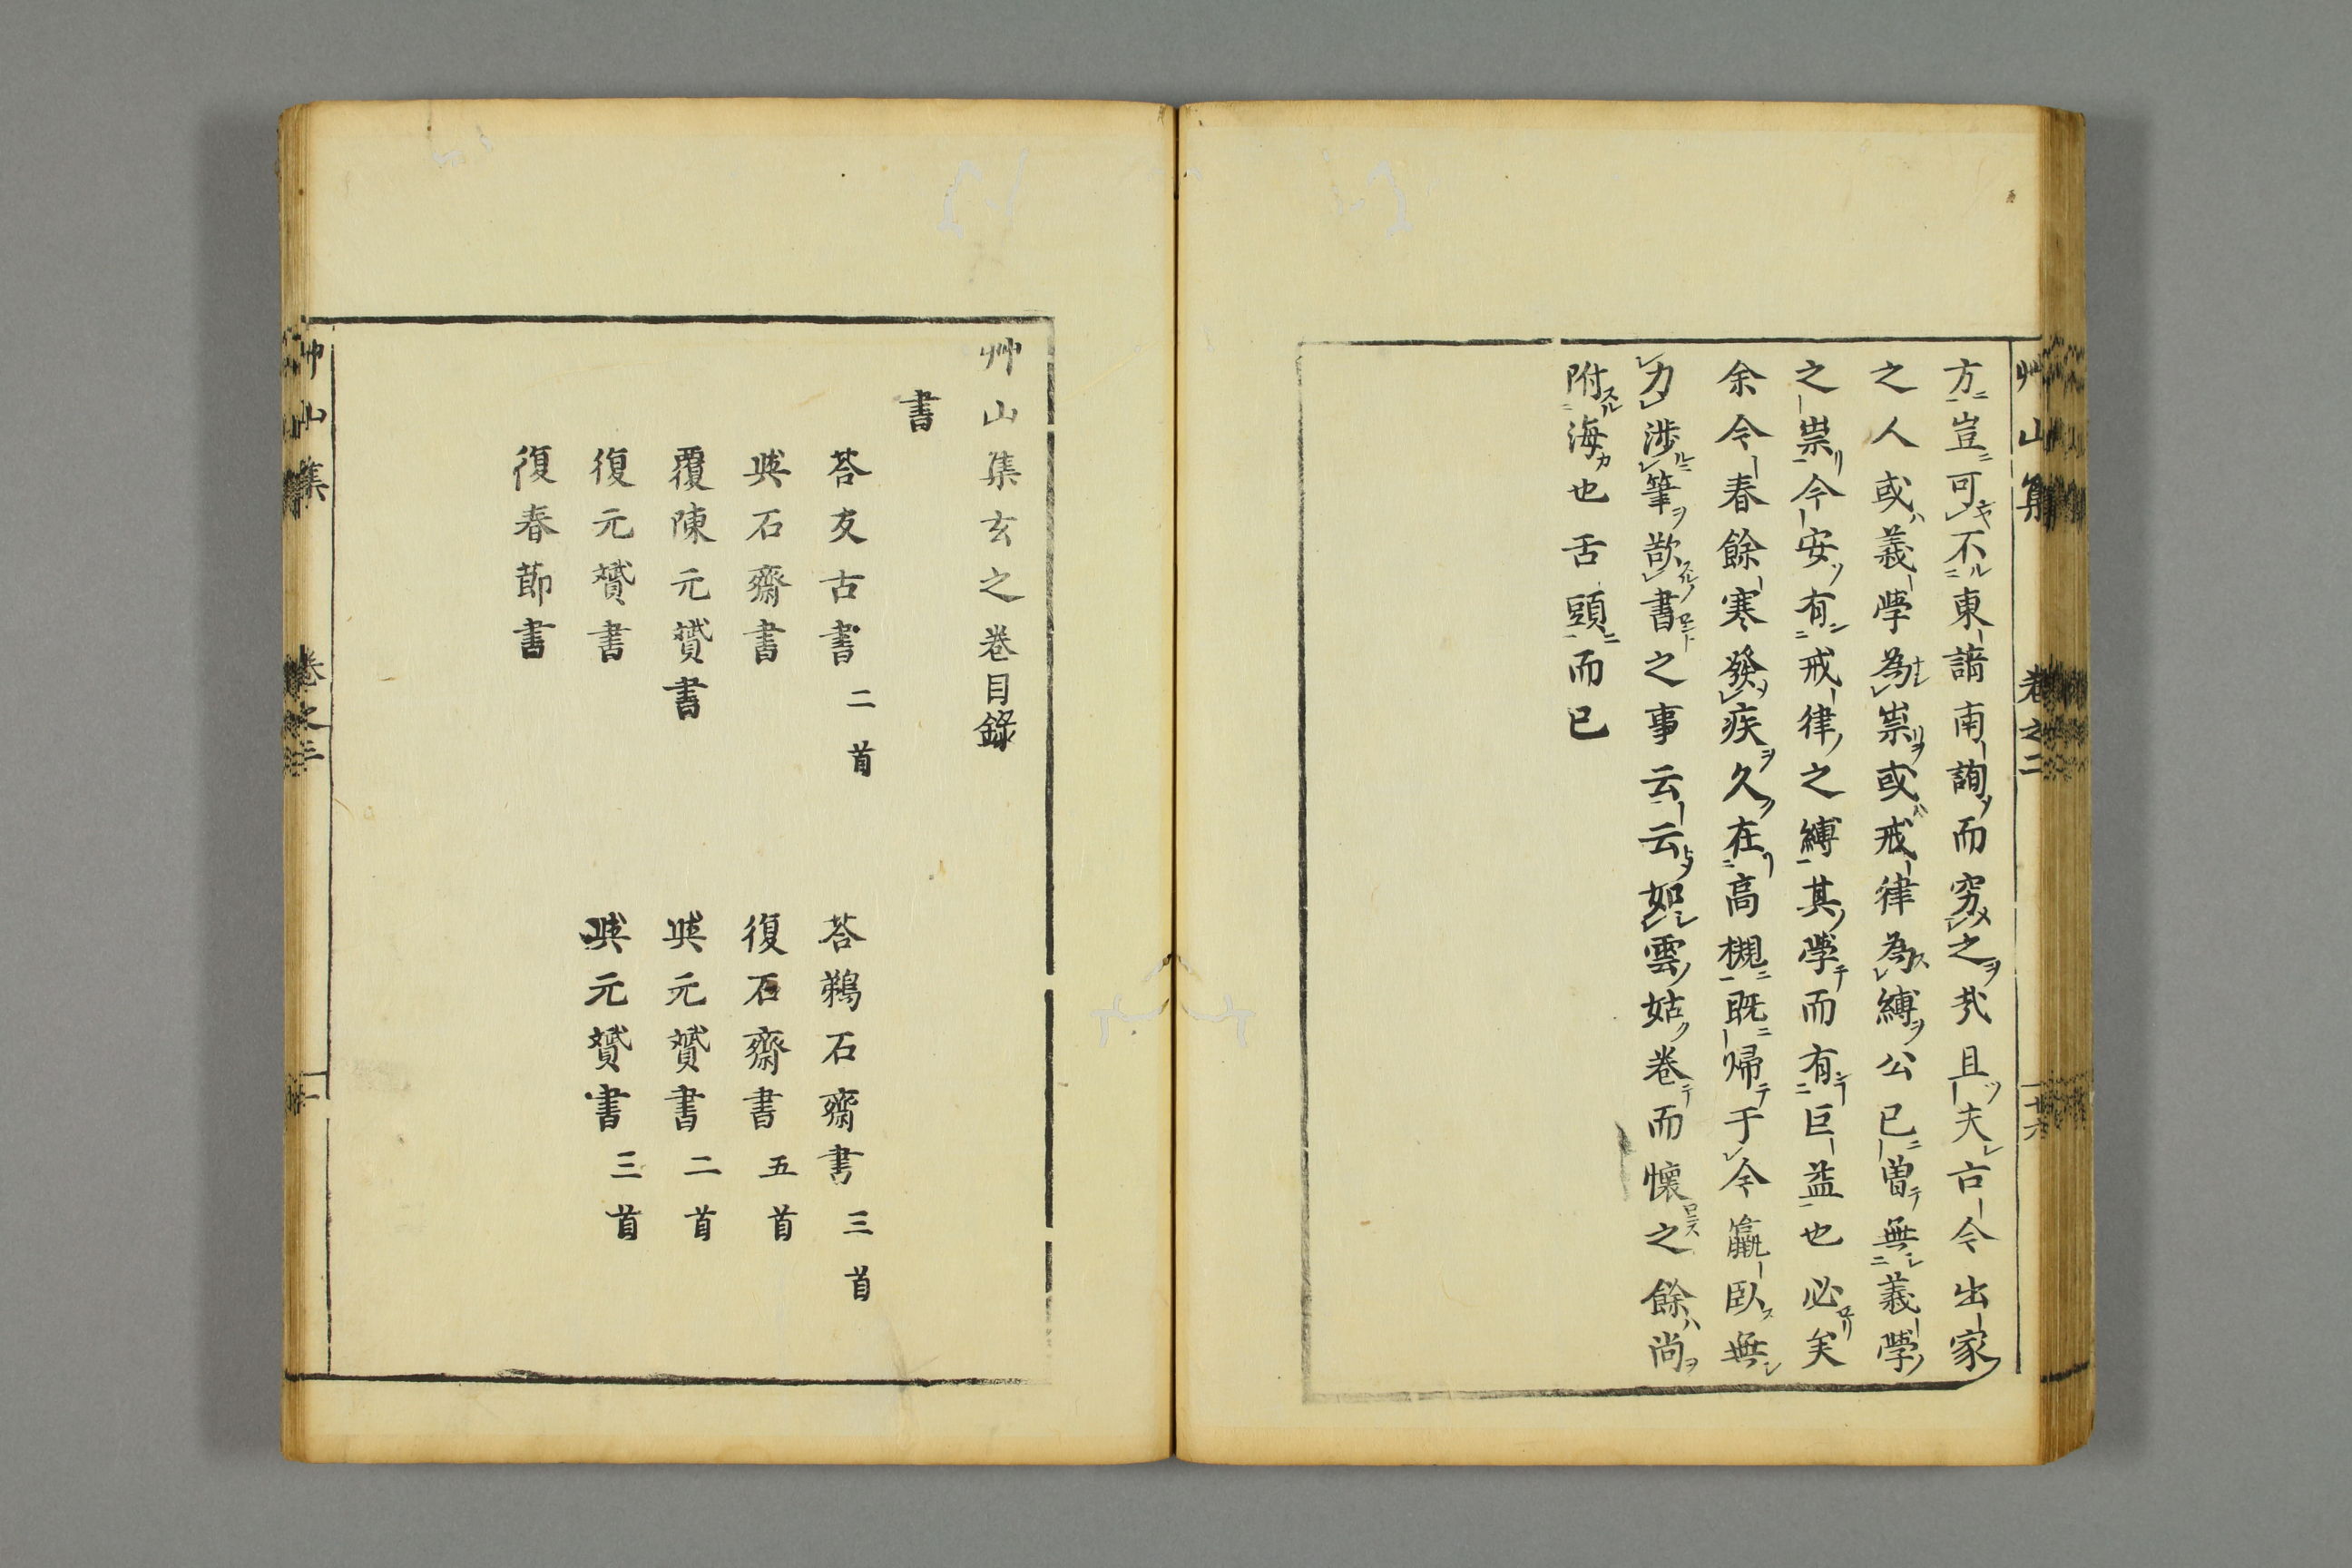 艸山集 卷之二 廿六
方豈可不東諳南詢而窮之哉且夫古今出家
之人或義學為祟或戒律為縛公已曽無義學
之祟今安有戒律之縛其學而有巨益也必矣
余今春餘寒發疾久在高槻既歸于今羸臥無
力渉筆欲書之事云云恕雲姑卷而懷之餘尚
附海也舌頭而已
艸山集玄之卷目錄
書
荅友古書二首 荅鵜石齋書三首
與石齋書 復石齋書五首
覆陳元贇書 與元贇書二首
復元贇書 與元贇書三首
復春莭書
艸山集 卷之三 一